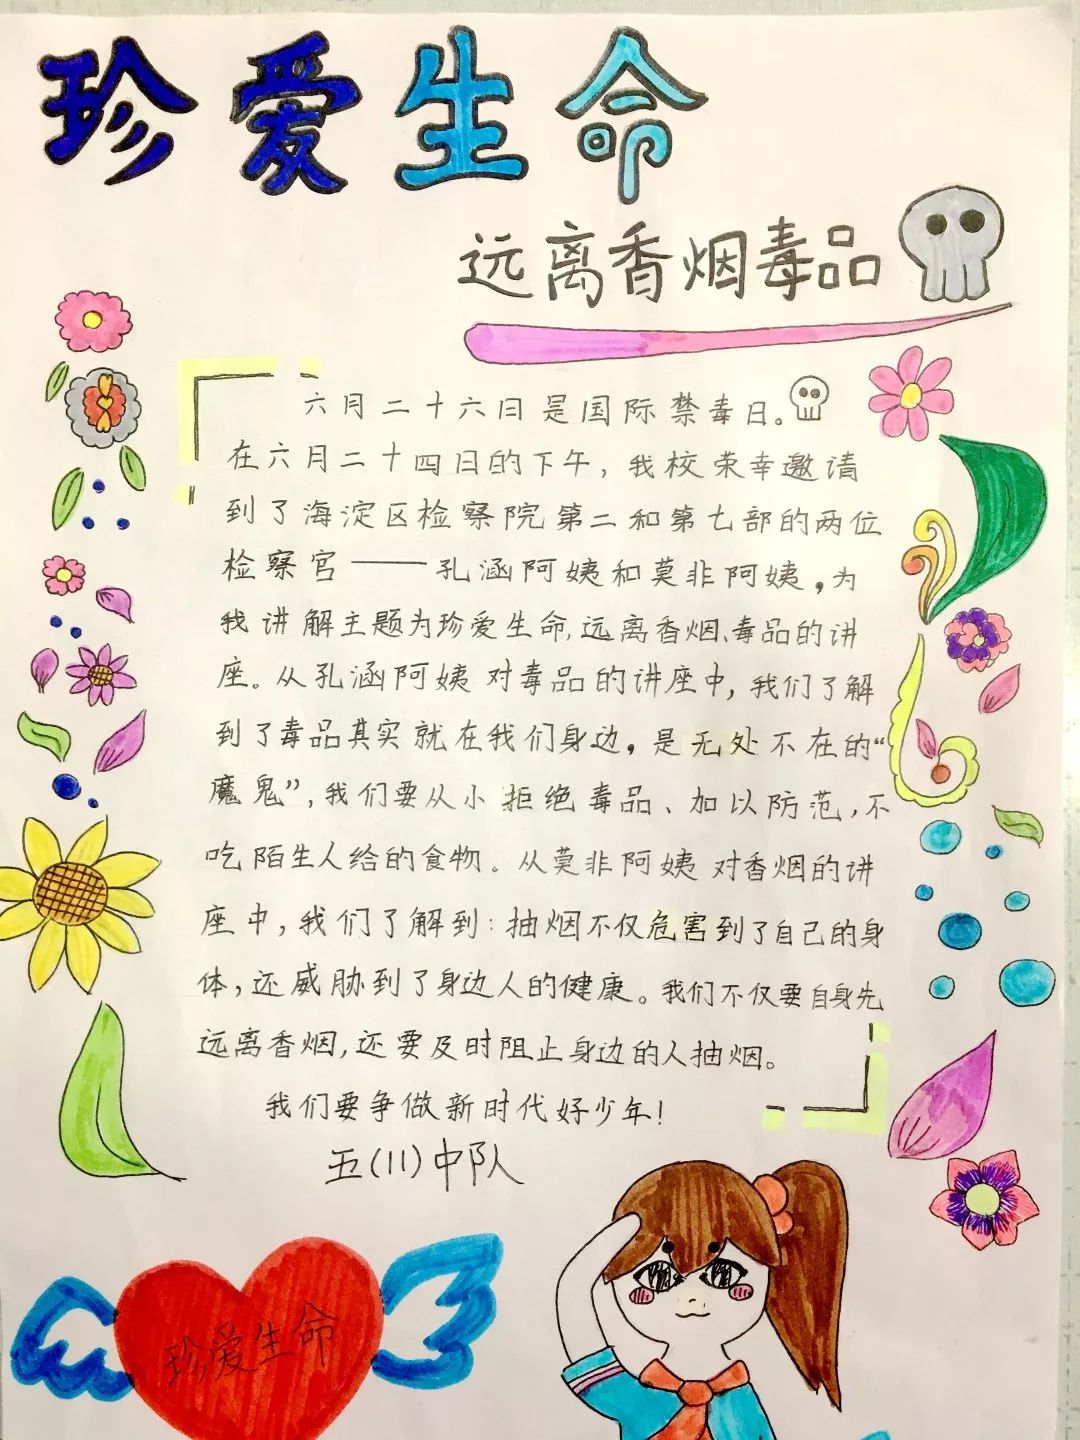 珍爱生命
远离香烟毒品
六月二十六日是国际禁毒日。
在六月二十四日的下午，我校荣幸邀请
到了海淀区检察院第二和第七部的两位
检察官——孔涵阿姨和莫非阿姨，为
我讲解主题为珍爱生命，远离香烟、毒品的讲
座。从孔涵阿姨对毒品的讲座中，我们了解
到了毒品其实就在我们身边，是无处不在的“
魔鬼”，我们要从小拒绝毒品、加以防范，不
吃陌生人给的食物。从莫非阿姨对香烟的讲
座中，我们了解到：抽烟不仅危害到了自己的身
体，还威胁到了身边人的健康。我们不仅要自身先
远离香烟，还要及时阻止身边的人抽烟。
我们要争做新时代好少年！
五(11)中队
珍爱生命